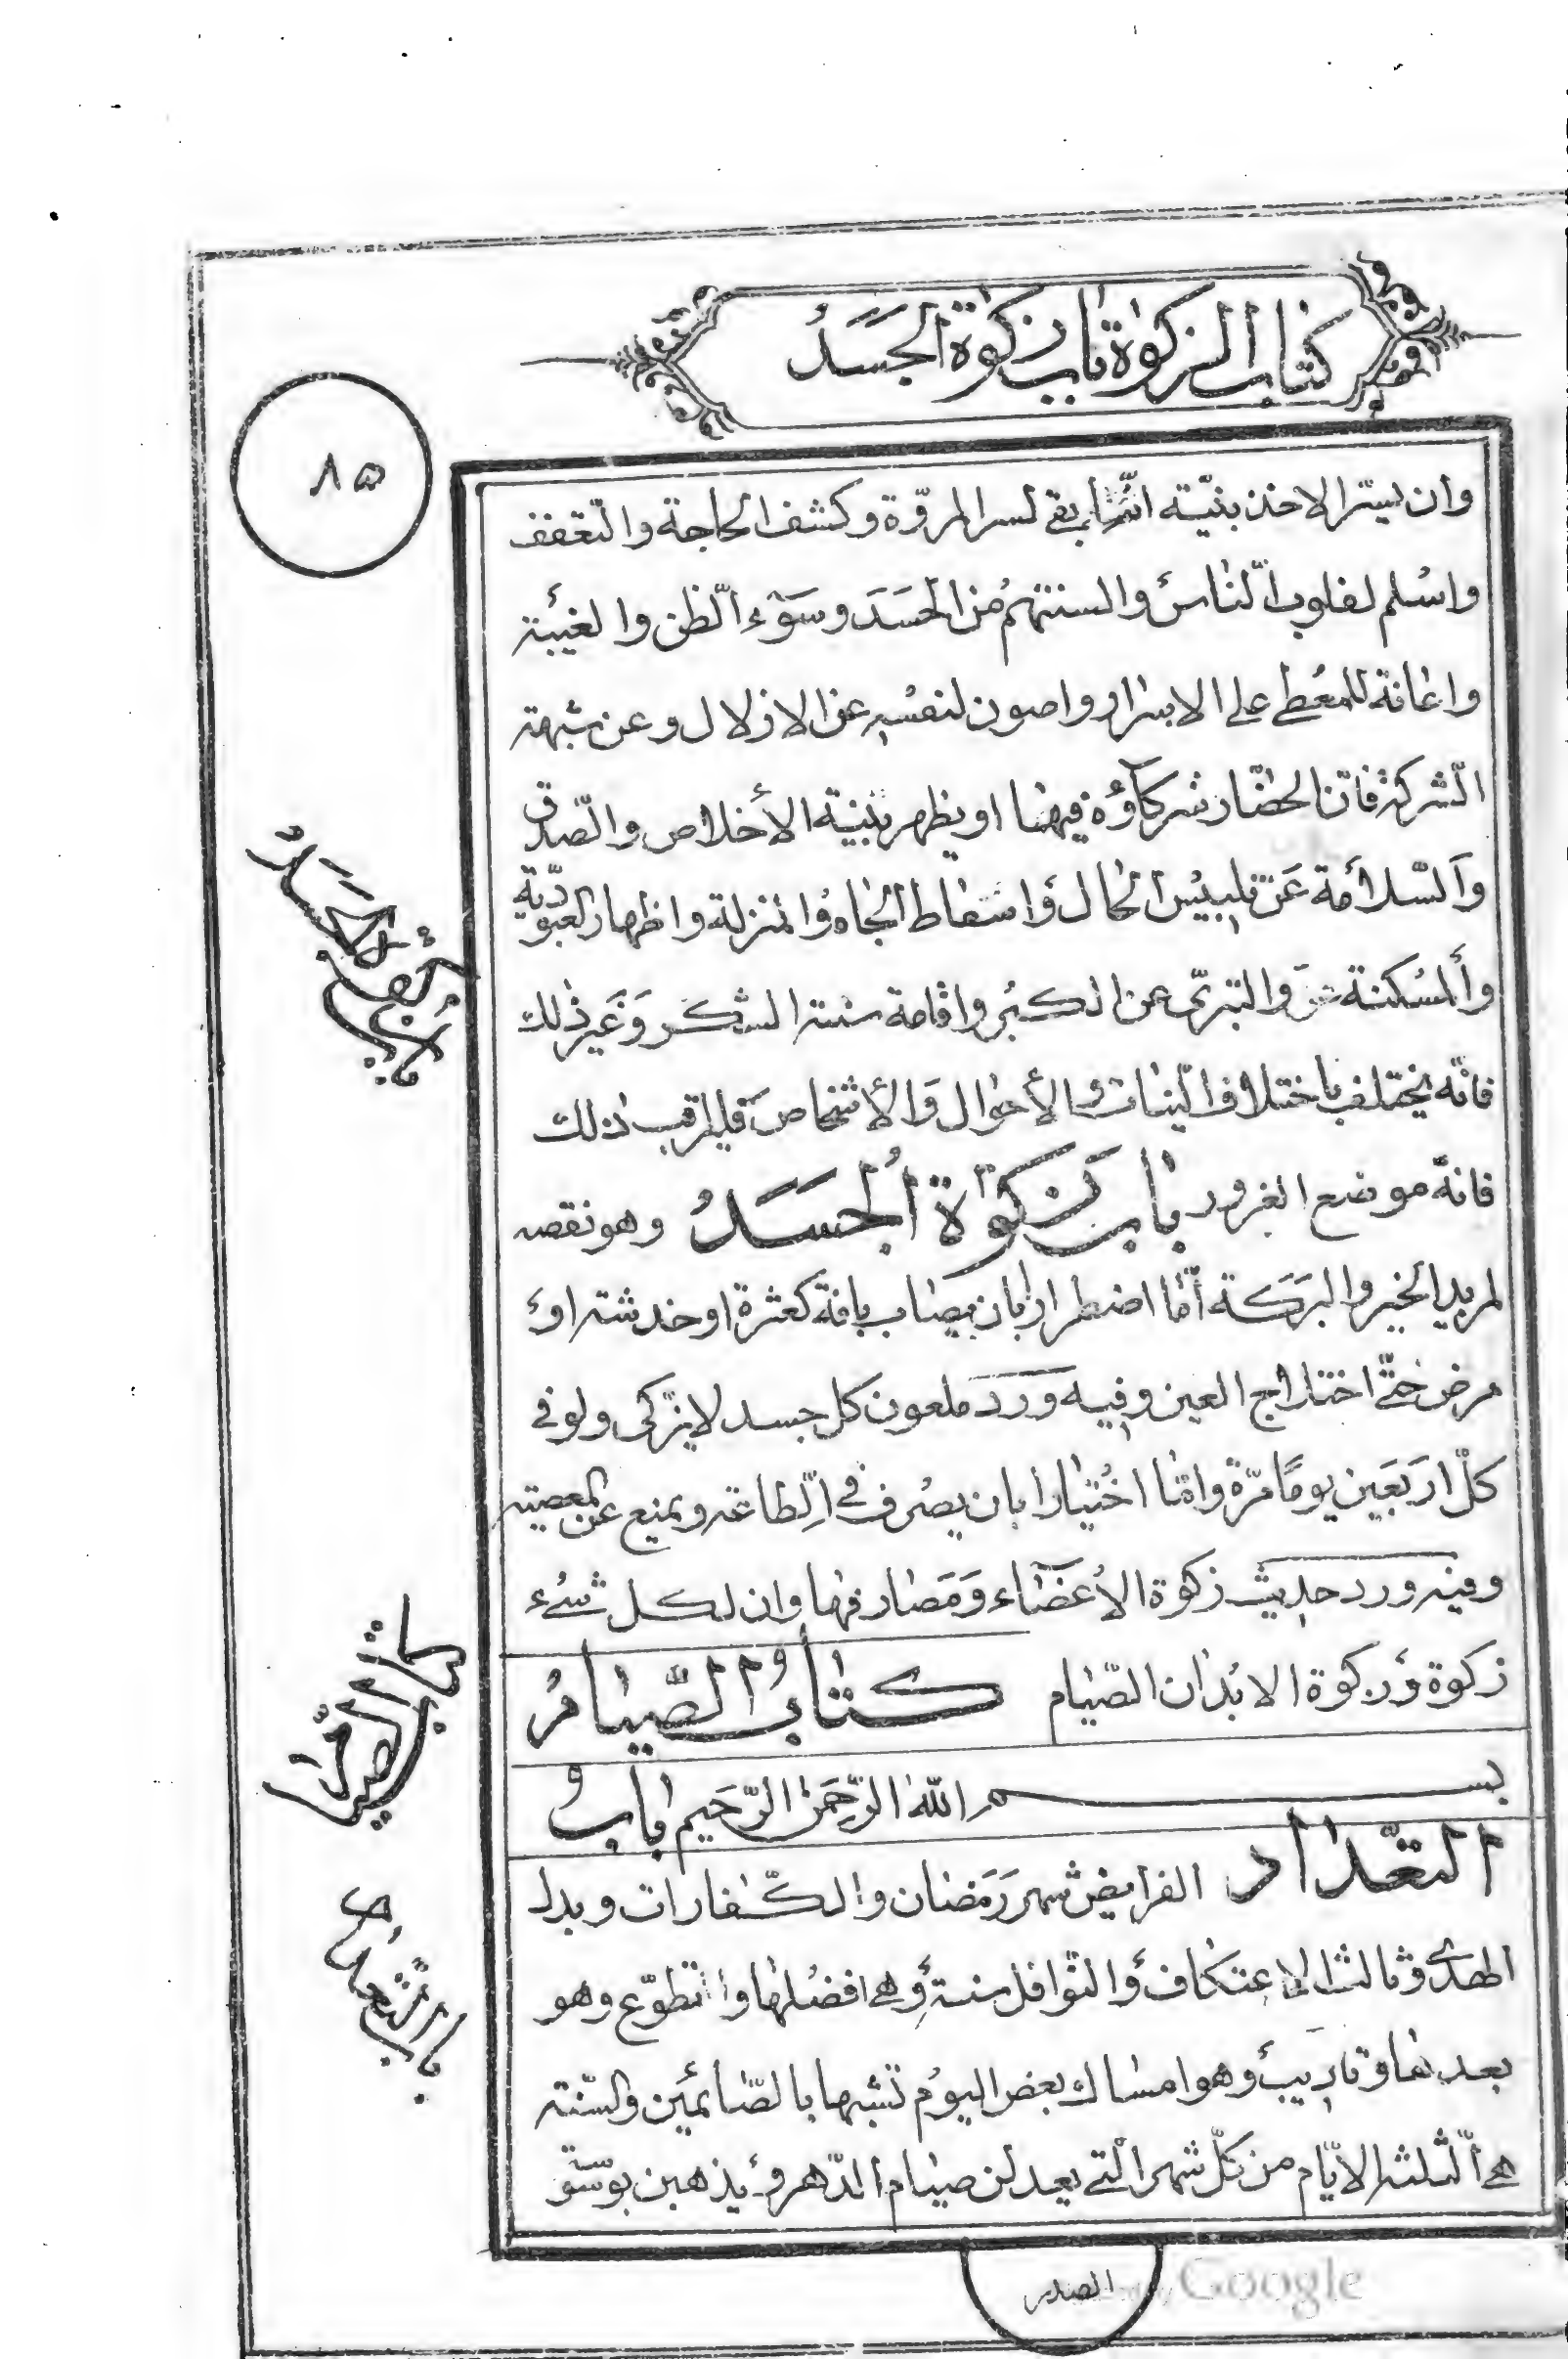 كتاب الزكوة باب زكوة الجسد
٨٥
وان يستر الاخذ بنيّة انّه ابقى لستر المروّة وكشف الحاجة والتّعفف
واسلم لقلوب النّاس والسنتهم من الحسد وسوء الظّن والغيبة
واعانة للمعطى على الاسرار واصون لنفسه عن الاذلال وعن شبهة
الشّركة فانّ الحضّار شركاؤه فيها او يظهر بنيّة الأخلاص والصّدق
والسّلامة عن تلبيس الحال واسقاط الجاه والمنزلة واظهار العبوديّة
وألمسكنة والتبرّى عن الكبر واقامة سنة الشكر وغير ذلك
فانّه يختلف باختلاف النّيات والأحوال والأشخاص فليراقب ذلك
فانّه موضع الغرور باب زكوة الجسد وهو نقصه
لمريد الخير والبركة أمّا اضطرارا بان يصاب بافة كعثرة او خدشة او
مرض حتّى اختلاج العين وفيه ورد ملعون كل جسد لا يزكّى ولو فى
كلّ اربعين يومًا مرّة وامّا اختيارا بان يصرف فى الطّاعة ويمنع عن المعصية
وفيه ورد حديث زكوة الأعضاء ومصارفها وان لكل شىء
زكوة وزكوة الابدان الصّيام كتاب الصّيام
بسم الله الرّحمن الرّحيم باب
التعّداد الفرايض شهر رمضان والكفّارات وبدل
الهدى وثالث الاعتكاف والنّوافل سنة وهى افضلها والتطوّع وهو
بعدها وتاديب وهو امساك بعض اليوم تشبها بالصّائمين والسّنة
هى الثّلثة الايّام من كلّ شهر الّتى يعدلن صيام الدّهر ويذهبن بوسوسة
الصدر
باب زكوة الجسد
كتاب الصّيام
باب التّعداد
Google